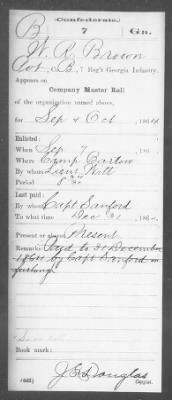 (Confederate.)
B 7 Ga.
W. R. Brown
Co. B, 7 Reg't Georgia Infantry.
Appears on
Company Muster Roll
of the organization named above,
for Sep & Oct, 186
Enlisted:
When Sep 7, 186
Where Camp Bartow
By whom Lieut
Period
Last paid:
By whom Capt Sanford
To what time Dec 31, 186
Present or absent Present
Remarks: to 31 December
1864 by Capt Sanford
Book mark:
J. S. Douglas
(642) Copyist.